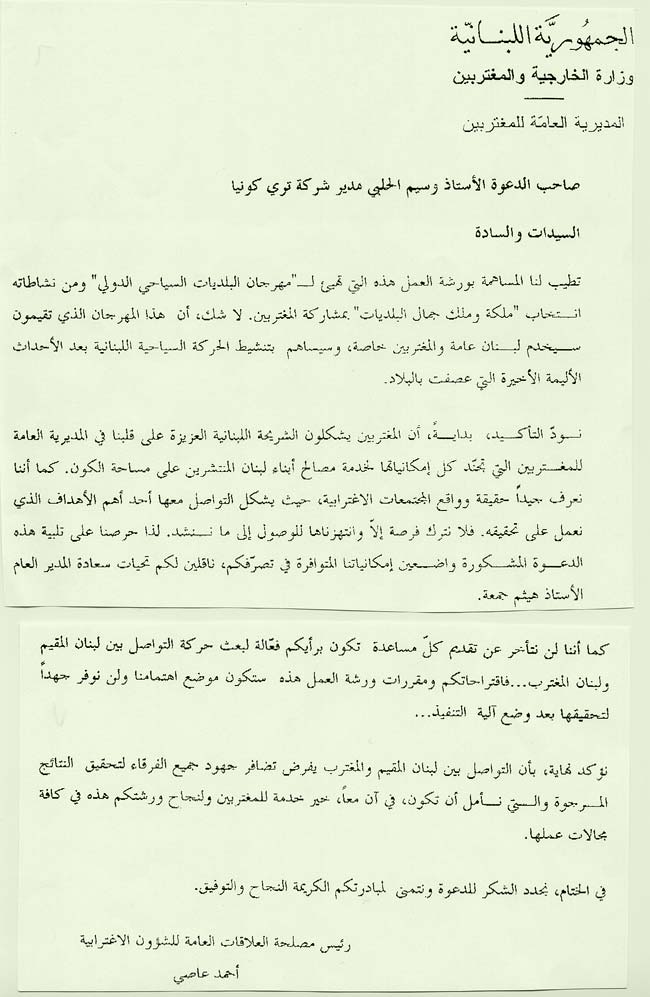 الجمهُوريَّة اللبنـانيّة
وزارة الخارجية والمغتربين
المديرية العامّة للمغتربين
صاحب الدعوة الأستاذ وسيم الحلبي مدير شركة تري كونيا
السيدات والسادة
تطيب لنا المساهمة بورشة العمل هذه التي تهيئ لــ"مهرجان البلديات السياحي الدولي" ومن نشاطاته
انتخاب "ملكة وملك جمال البلديات" بمشاركة المغتربين. لا شك، أن هذا المهرجان الذي تقيمون
سيخدم لبنان عامة والمغتربين خاصة، وسيساهم بتنشيط الحركة السياحية اللبنانية بعد الأحداث
الأليمة الأخيرة التي عصفت بالبلاد.
نودّ التأكيد، بدايةً، أن المغتربين يشكلون الشريحة اللبنانية العزيزة على قلبنا في المديرية العامة
للمغتربين التي تجنّد كل إمكانياتها لخدمة مصالح أبناء لبنان المنتشرين على مساحة الكون. كما أننا
نعرف جيداً حقيقة وواقع المجتمعات الاغترابية، حيث يشكل التواصل معها أحد أهم الأهداف الذي
نعمل على تحقيقه. فلا نترك فرصة إلاّ وانتهزناها للوصول إلى ما ننشد. لذا حرصنا على تلبية هذه
الدعوة المشكورة واضعين إمكانياتنا المتوافرة في تصرّفكم، ناقلين لكم تحيات سعادة المدير العام
الأستاذ هيثم جمعة.
كما أننا لن نتأخر عن تقديم كلّ مساعدة تكون برأيكم فعّالة لبعث حركة التواصل بين لبنان المقيم
ولبنان المغترب...فاقتراحاتكم ومقررات ورشة العمل هذه ستكون موضع اهتمامنا ولن نوفر جهداً
لتحقيقها بعد وضع آلية التنفيذ...
نؤكد نهاية، بأن التواصل بين لبنان المقيم والمغترب يفرض تضافر جهود جميع الفرقاء لتحقيق النتائج
المرجوة والتي نأمل أن تكون، في آن معاً، خير خدمة للمغتربين ولنجاح ورشتكم هذه في كافة
مجالات عملها.
في الختام، نجدد الشكر للدعوة ونتمنى لمبادرتكم الكريمة النجاح والتوفيق.
رئيس مصلحة العلاقات العامة للشؤون الاغترابية
أحمد عاصي